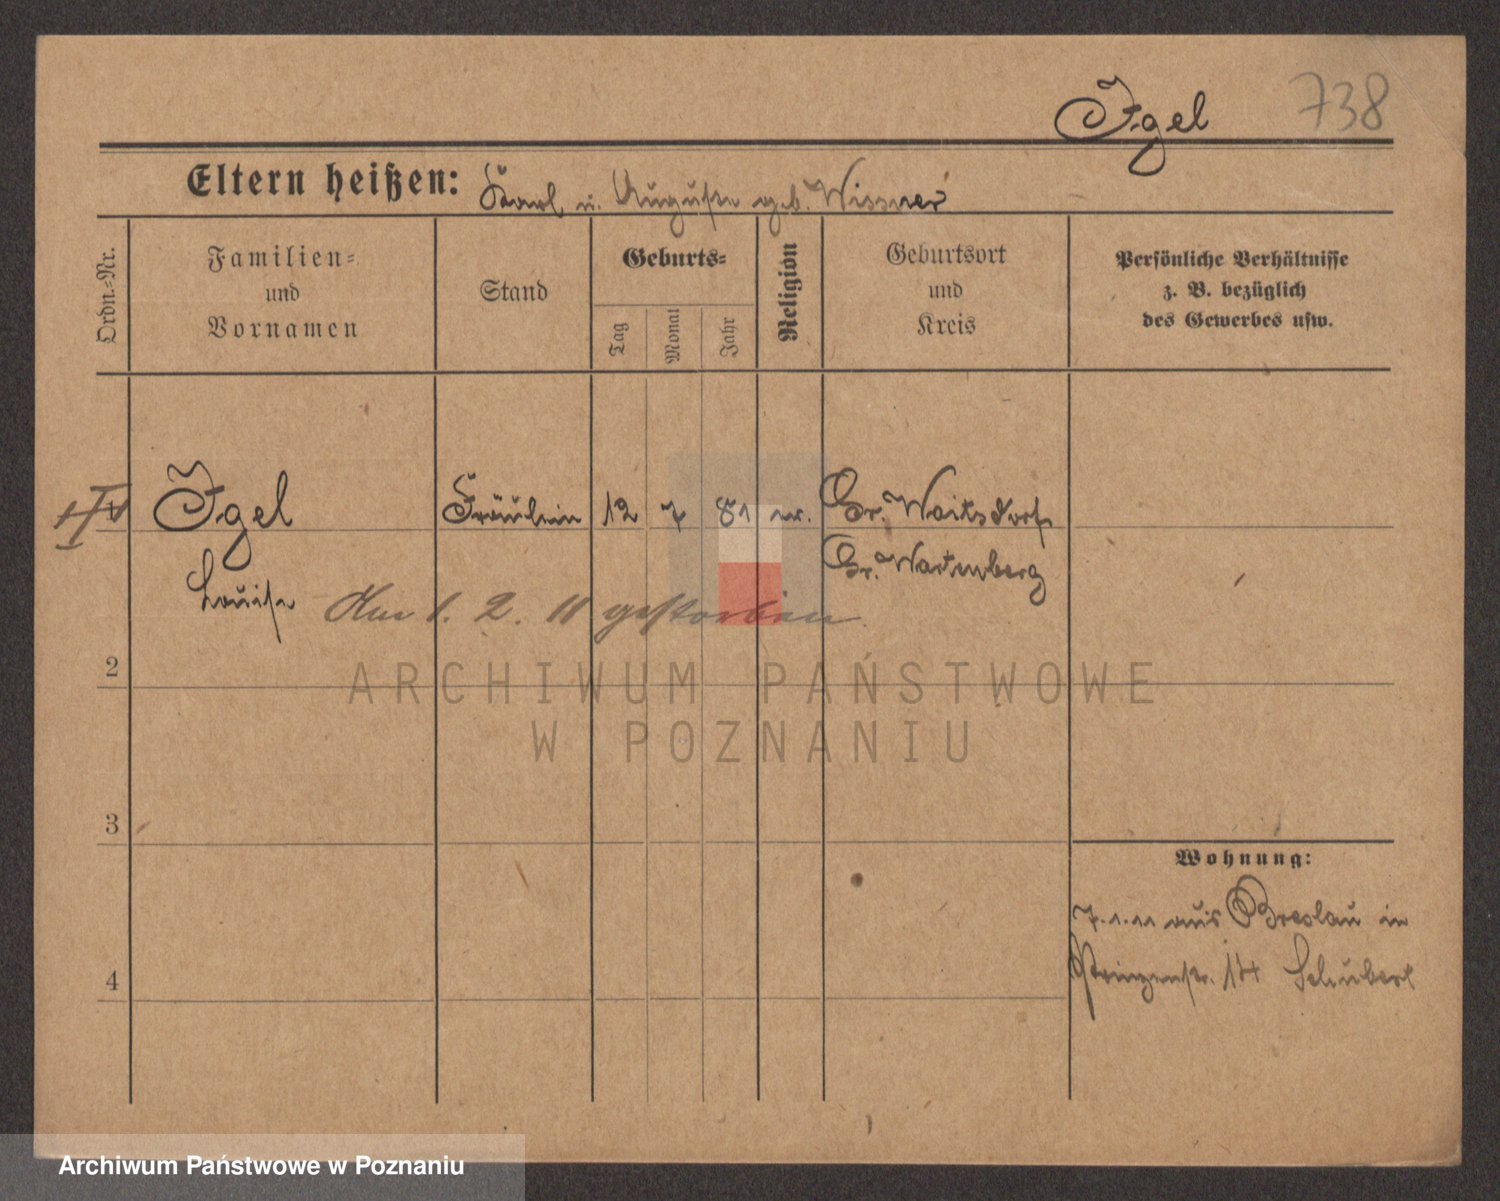 Igel 738
Eltern heißen: Karl u. Auguste geb. Wissner
Ordn.-Nr.
Familien- und Vornamen
Stand
Geburts-
Tag
Monat
Jahr
Religion
Geburtsort und Kreis
Persönliche Verhältnisse
z. B. bezüglich
des Gewerbes usw.
1 Igel Fräulein 12 7 81 ev. Gr. Woitsdorf
Gr. Wartenberg
Louise Am 1. 2. 11 gestorben
2
ARCHIWUM PAŃSTWOWE
W POZNANIU
3
Wohnung:
7.1.11 aus Breslau in
4 Prinzenstr. 14 Schubert
Archiwum Państwowe w Poznaniu